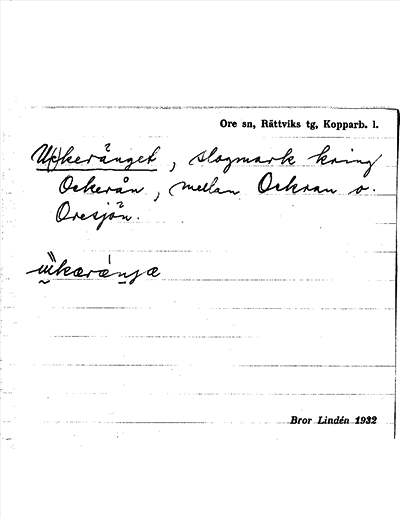 Ore sn, Rättviks tg, Kopparb. l.
U(c)keränget, slogmark kring
Ockerån, mellan Ockran o.
Oresjön.
Bror Lindén 1932